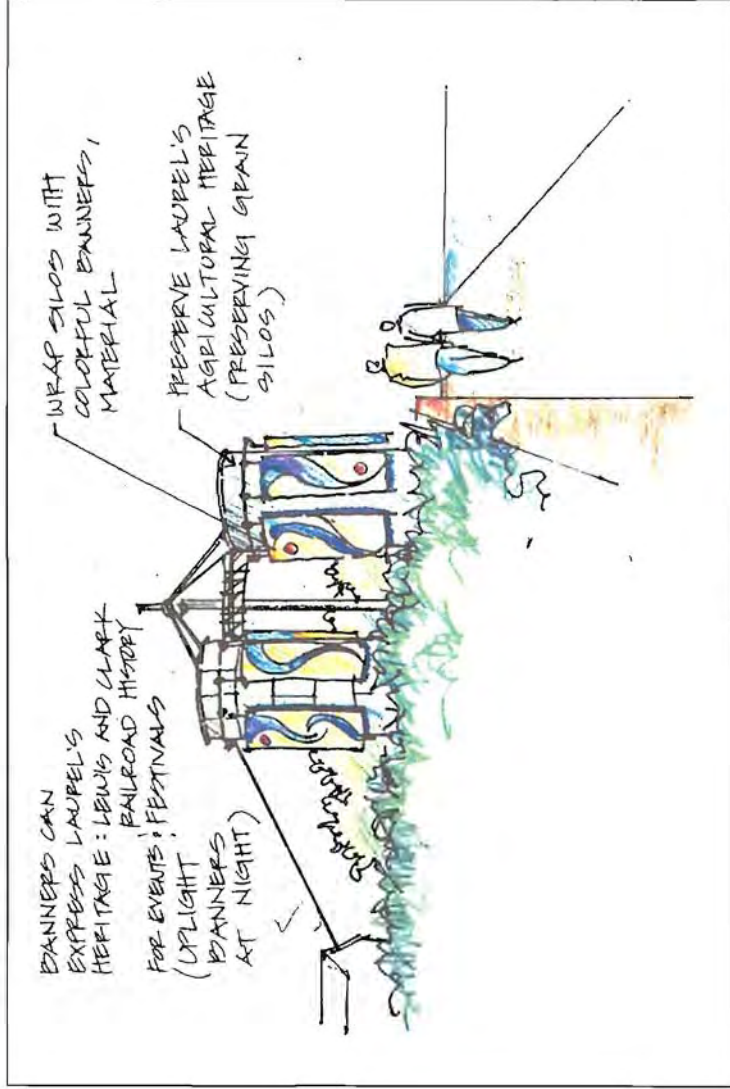 BANNERS CAN
EXPRESS LAUREL'S
HERITAGE: LEWIS AND CLARK
RAILROAD HISTORY
FOR EVENTS; FESTIVALS
(UPLIGHT
BANNERS
AT NIGHT)
WRAP SILOS WITH
COLORFUL BANNERS,
MATERIAL
PRESERVE LAUREL'S
AGRICULTURAL HERITAGE
(PRESERVING GRAIN
SILOS)